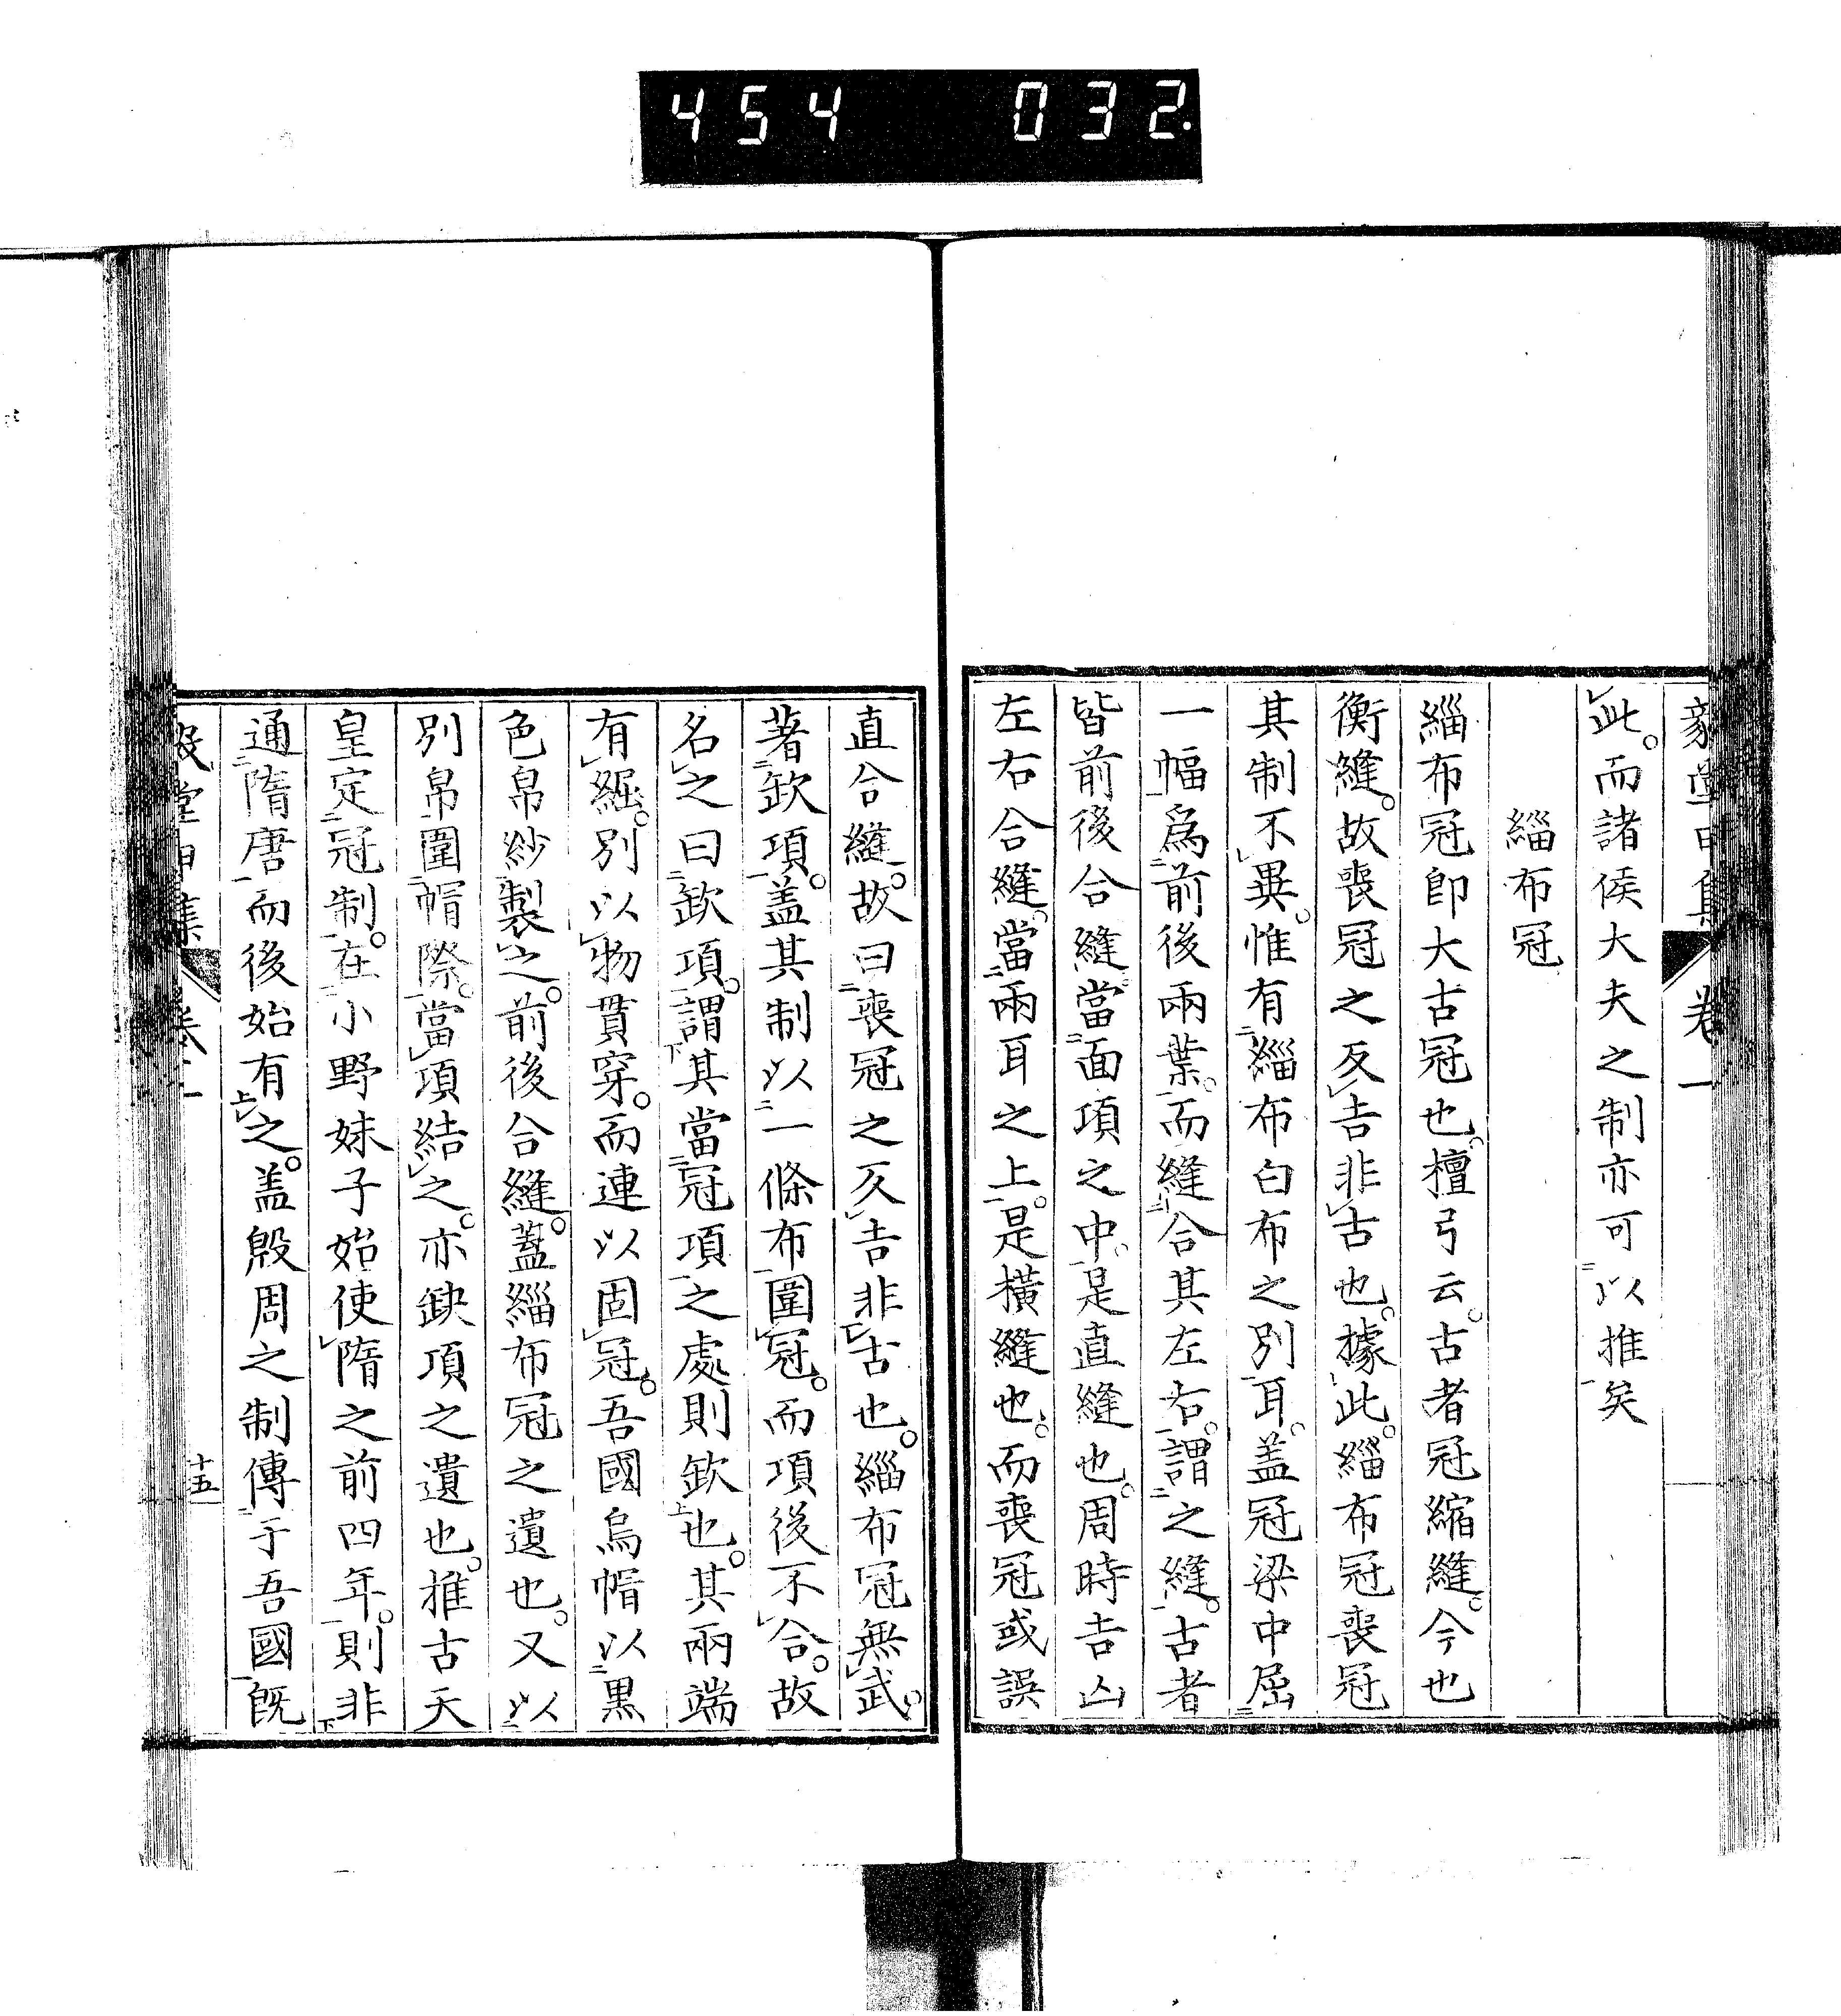 454 032.
此。而諸侯大夫之制亦可以推矣
緇布冠
緇布冠卽大古冠也。檀弓云。古者冠縮縫。今也
衡縫。故喪冠之反吉非古也。據此。緇布冠喪冠
其制不異。惟有緇布白布之別耳。盖冠梁中屈
一幅爲前後兩葉。而縫合其左右。謂之縫。古者
皆前後合縫當面項之中。是直縫也。周時吉凶
左右合縫。當兩耳之上。是橫縫也。而喪冠或誤
直合縫。故曰喪冠之反吉非古也。緇布冠無武。
著欽項。盖其制以一條布圍冠。而項後不合。故
名之曰欽項。謂其當冠項之處則欽也。其兩端
有𦀖。別以物貫穿。而連以固冠。吾國烏帽以黒
色帛紗製之。前後合縫。蓋緇布冠之遺也。又以
別帛圍帽際。當項結之。亦缺項之遺也。推古天
皇定冠制。在小野妹子始使隋之前四年。則非
通隋唐而後始有之。盖殷周之制傳于吾國旣
十五